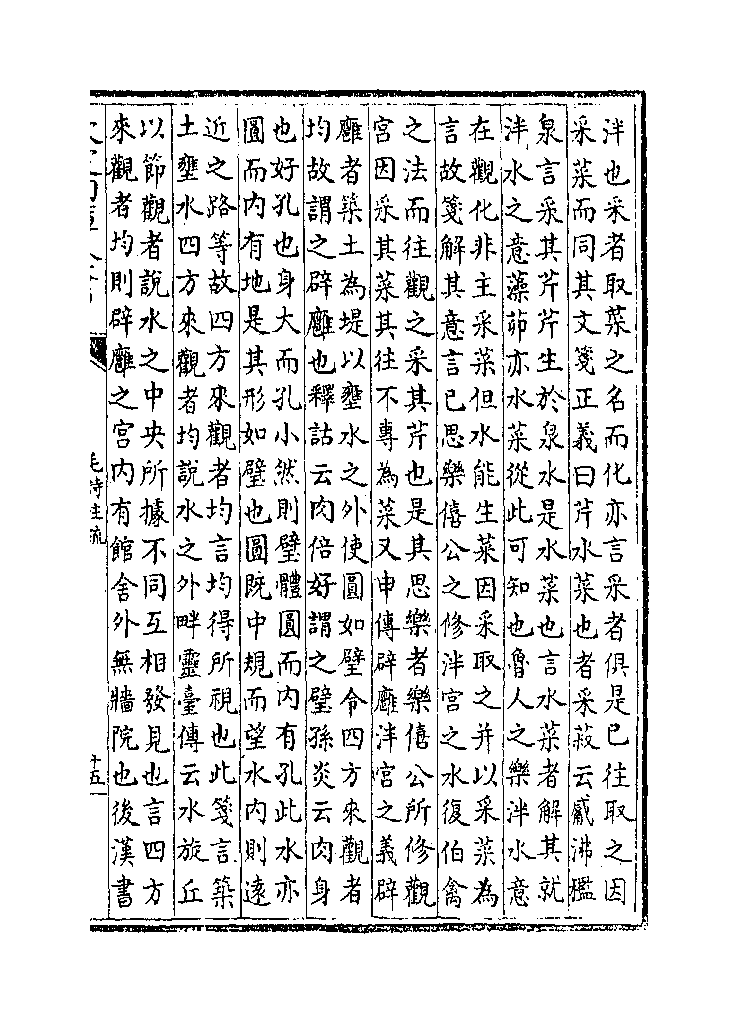 泮也采者取菜之名而化亦言采者俱是已往取之因
采菜而同其文箋正義曰芹水菜也者采菽云觱沸檻
泉言采其芹芹生於泉水是水菜也言水菜者解其就
泮水之意藻茆亦水菜從此可知也魯人之樂泮水意
在觀化非主采菜但水能生菜因采取之并以采菜為
言故箋解其意言已思樂僖公之修泮宫之水復伯禽
之法而往觀之采其芹也是其思樂者樂僖公所修觀
宫因采其菜其往不專為菜又申傳辟廱泮宫之義辟
廱者築土為堤以壅水之外使圓如璧令四方來觀者
均故謂之辟廱也釋詁云肉倍好謂之璧孫炎云肉身
也好孔也身大而孔小然則璧體圓而内有孔此水亦
圓而内有地是其形如璧也圓既中規而望水内則遠
近之路等故四方來觀者均言均得所視也此箋言築
土壅水四方來觀者均說水之外畔靈臺傳云水旋丘
以節觀者說水之中央所據不同互相發見也言四方
來觀者均則辟廱之宫内有館舍外無牆院也後漢書
毛詩注疏
十五